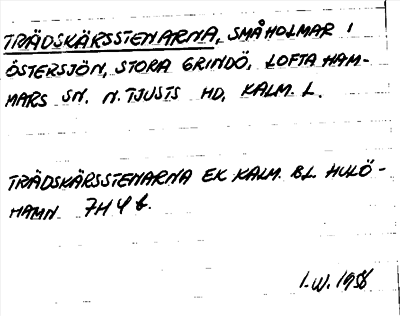 TRÄDSKÄRSSTENARNA, SMÅHOLMAR I
ÖSTERSJÖN, STORA GRINDÖ, LOFTA HAM-
MARS SN. N. TJUSTS HD, KALM. L.
TRÄDSKÄRSSTENARNA EK KALM. BL. HULÖ-
HAMN 7H4b.
I.W. 1958